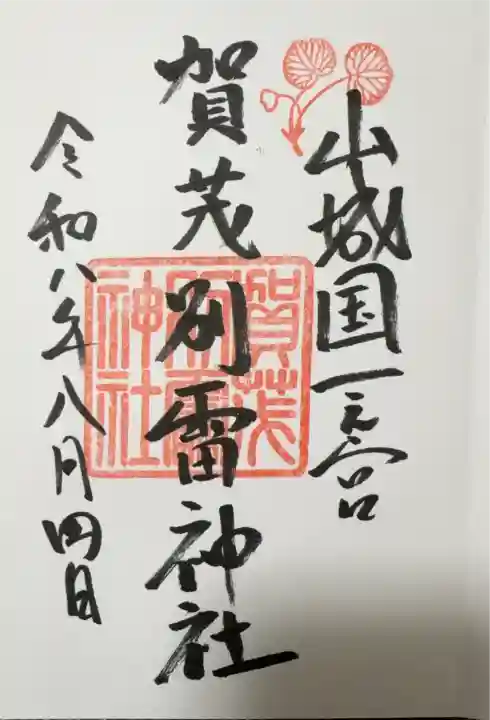 山城国一之宮
賀茂別雷神社
令和八年八月四日
賀茂
別雷
神社